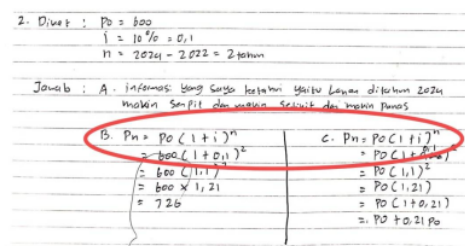 2. Diket : Po = 600
i = 10% = 0,1
n = 2024 - 2022 = 2 tahun
Jawab : A. informasi yang saya ketahui yaitu Lahan ditahun 2024
makin sempit dan makin sedikit dan makin panas
B. Pn = Po (1 + i)ⁿ
= 600 (1 + 0,1)²
= 600 (1,1)²
= 600 × 1,21
= 726
C. Pn = Po (1 + i)ⁿ
= Po (1 + 0,1)²
= Po (1,1)²
= Po (1,21)
= Po (1 + 0,21)
= Po + 0,21 Po